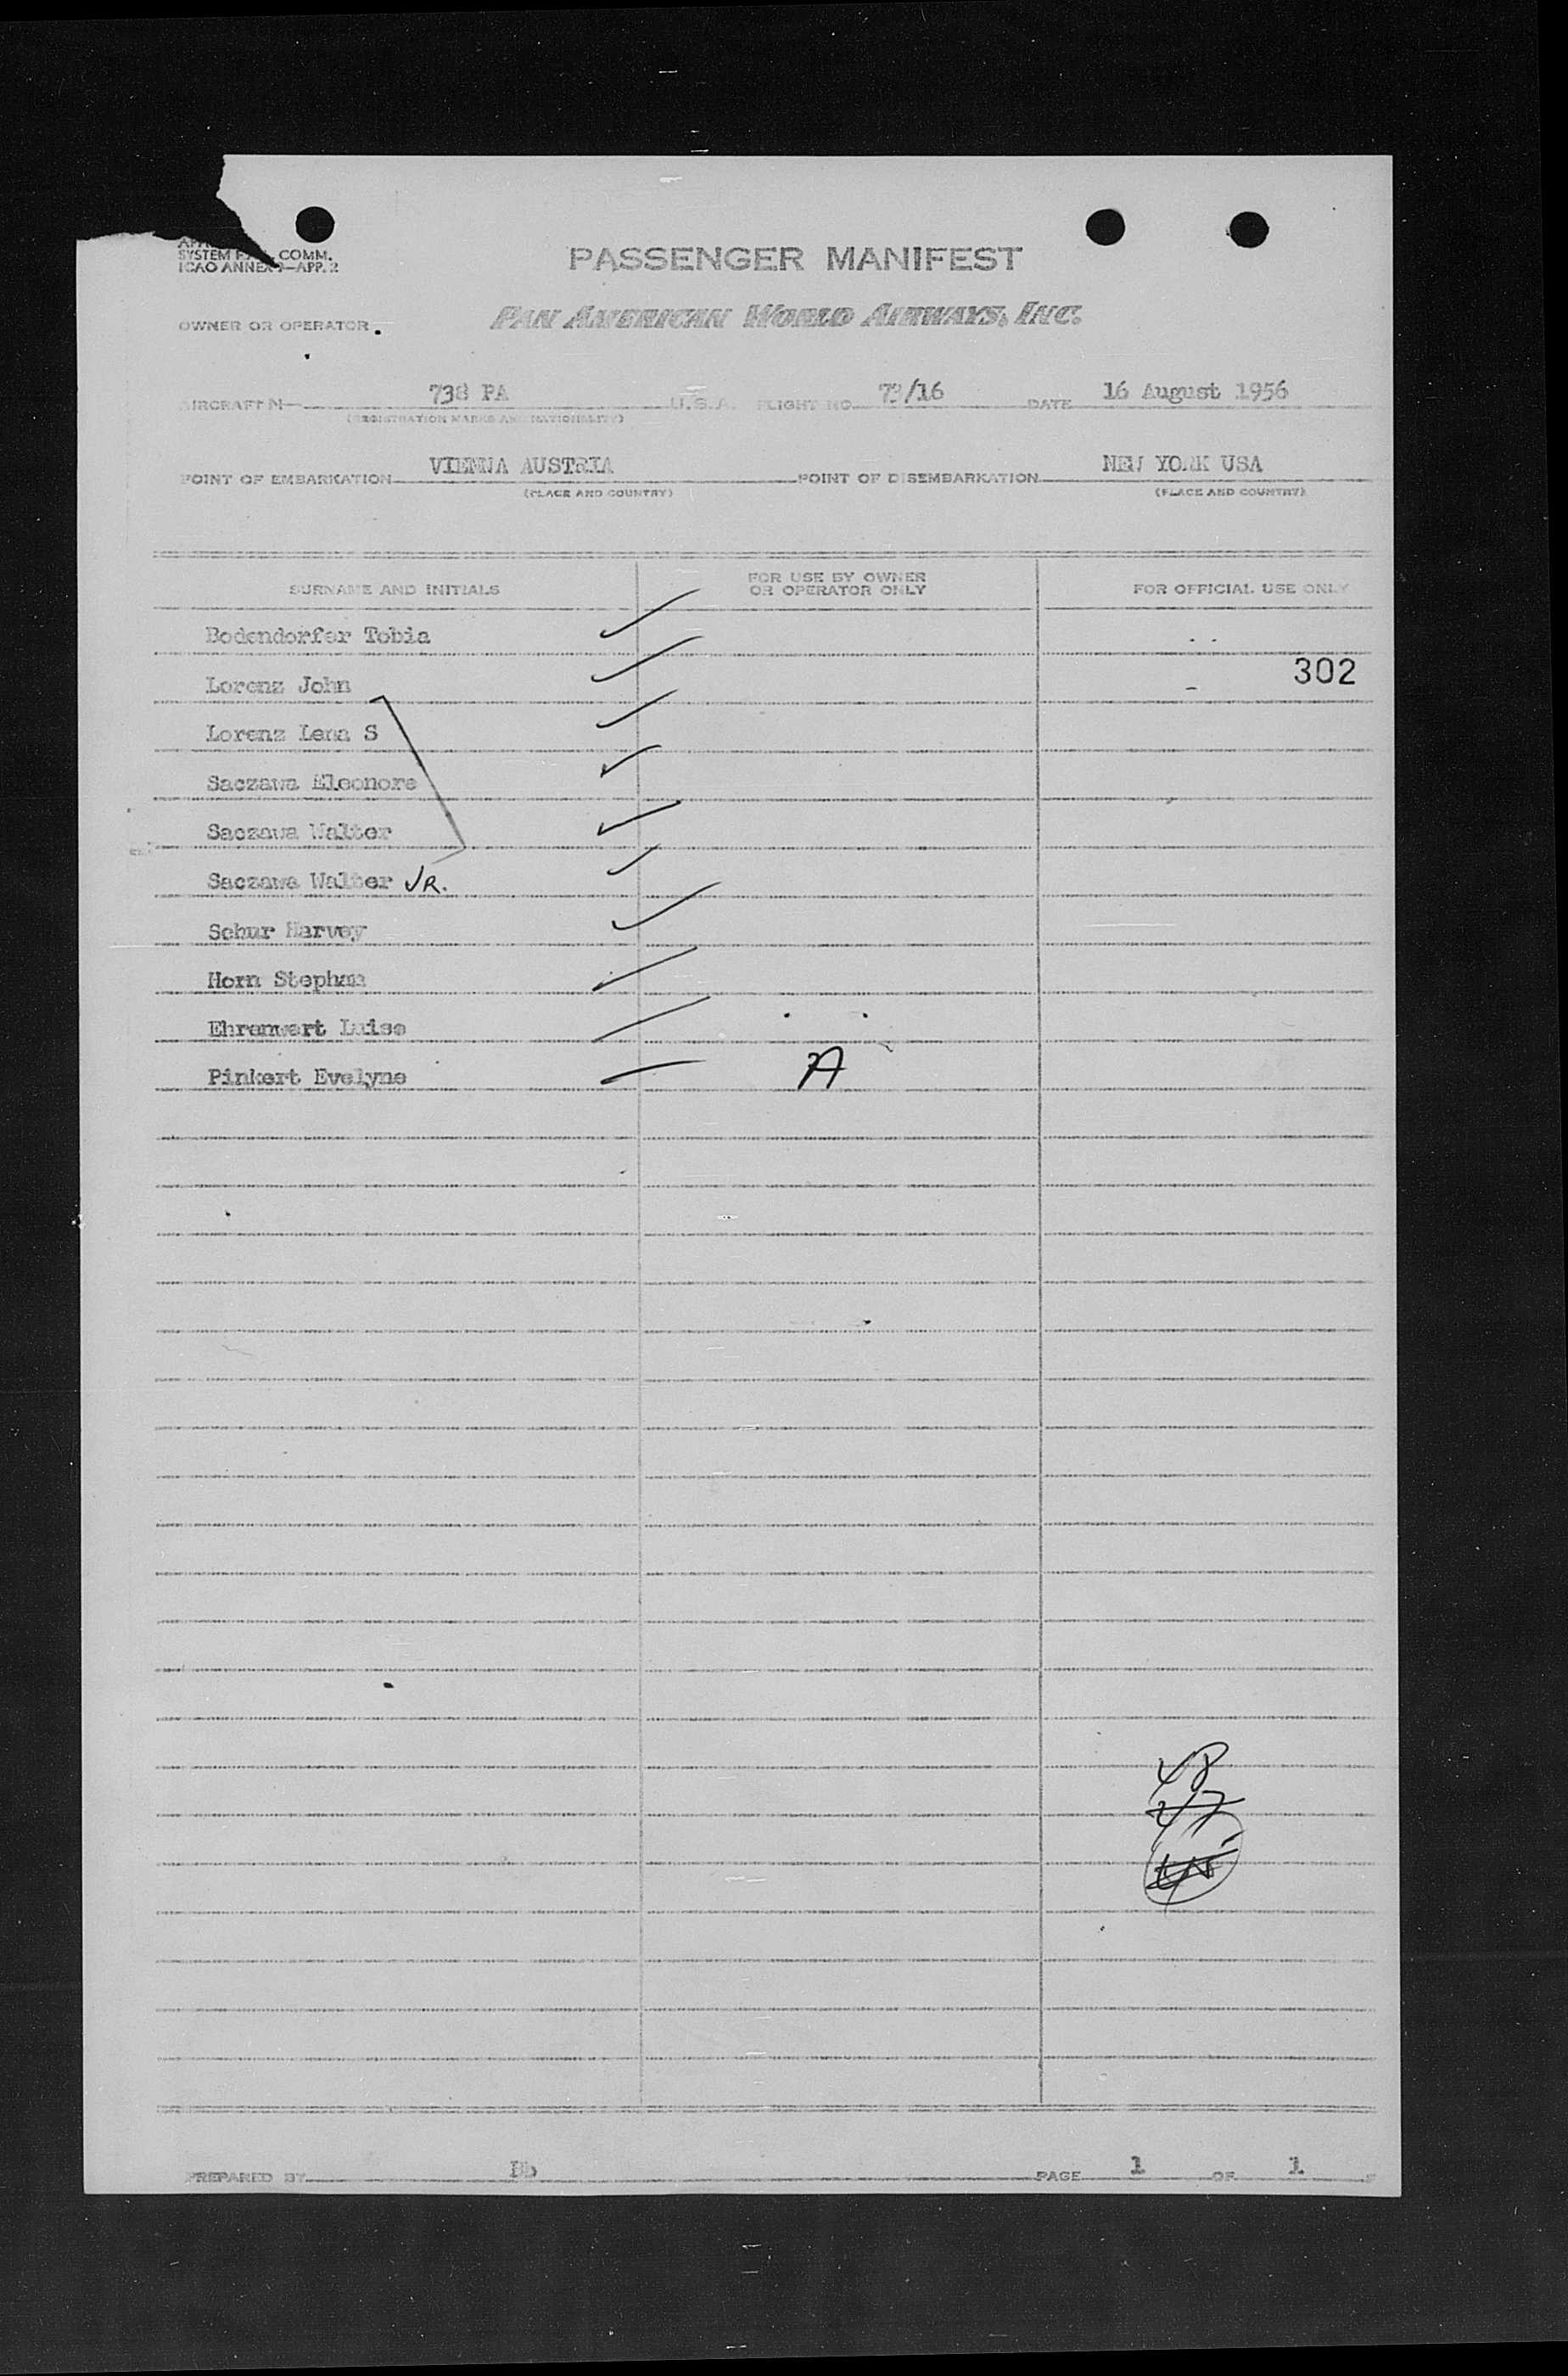 SYSTEM COMM.
ICAO ANNEX 9—APP. 2
PASSENGER MANIFEST
OWNER OR OPERATOR PAN AMERICAN WORLD AIRWAYS, INC.
AIRCRAFT N— 738 PA U.S.A. FLIGHT NO. /16 DATE 16 August 1956
(REGISTRATION MARKS AND NATIONALITY)
POINT OF EMBARKATION VIENNA AUSTRIA POINT OF DISEMBARKATION NEW YORK USA
(PLACE AND COUNTRY) (PLACE AND COUNTRY)
SURNAME AND INITIALS FOR USE BY OWNER OR OPERATOR ONLY FOR OFFICIAL USE ONLY
Bodendorfer Tobia
302
Lorenz John
Lorenz Lena S
Saczawa Eleonore
Saczawa Walter
Saczawa Walter JR.
Schur Harvey
Horn Stephan
Ehrenwert Luise
Pinkert Evelyne A
48
47
PREPARED BY Bb PAGE 1 OF 1